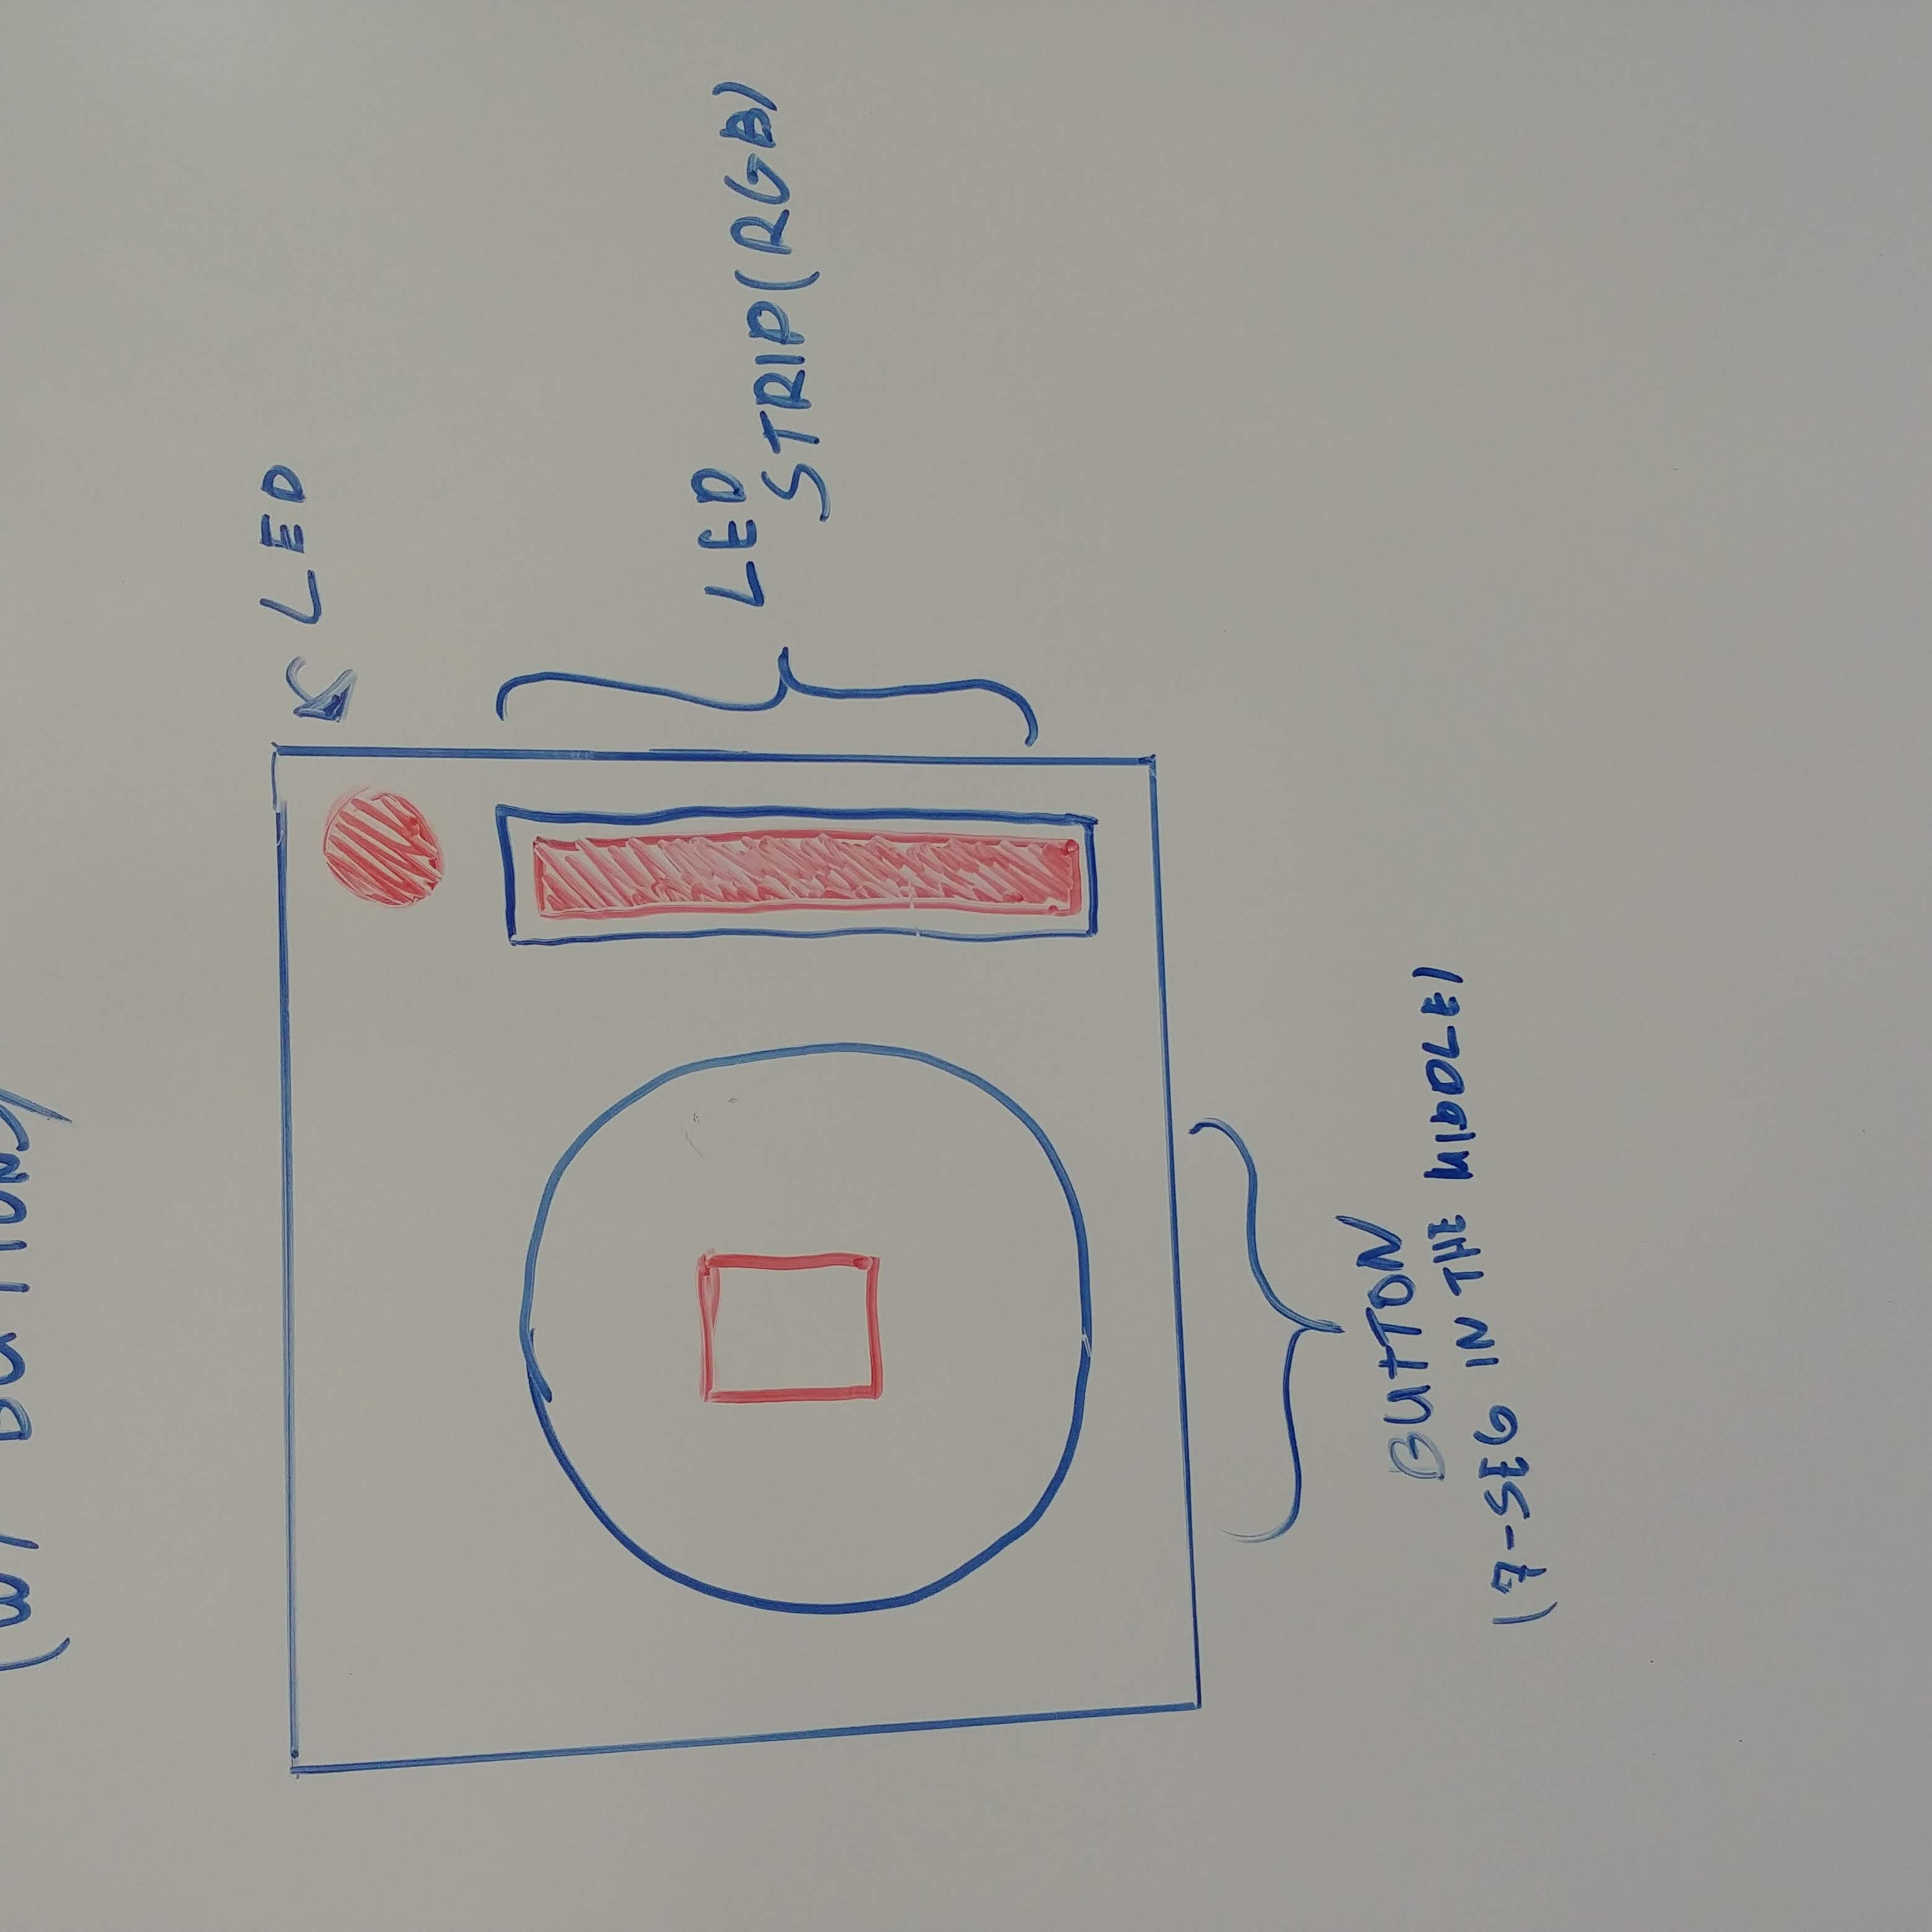 (W/ BUTTON)
LED
LED
STRIP(RGB)
BUTTON
(7-SEG IN THE MIDDLE)